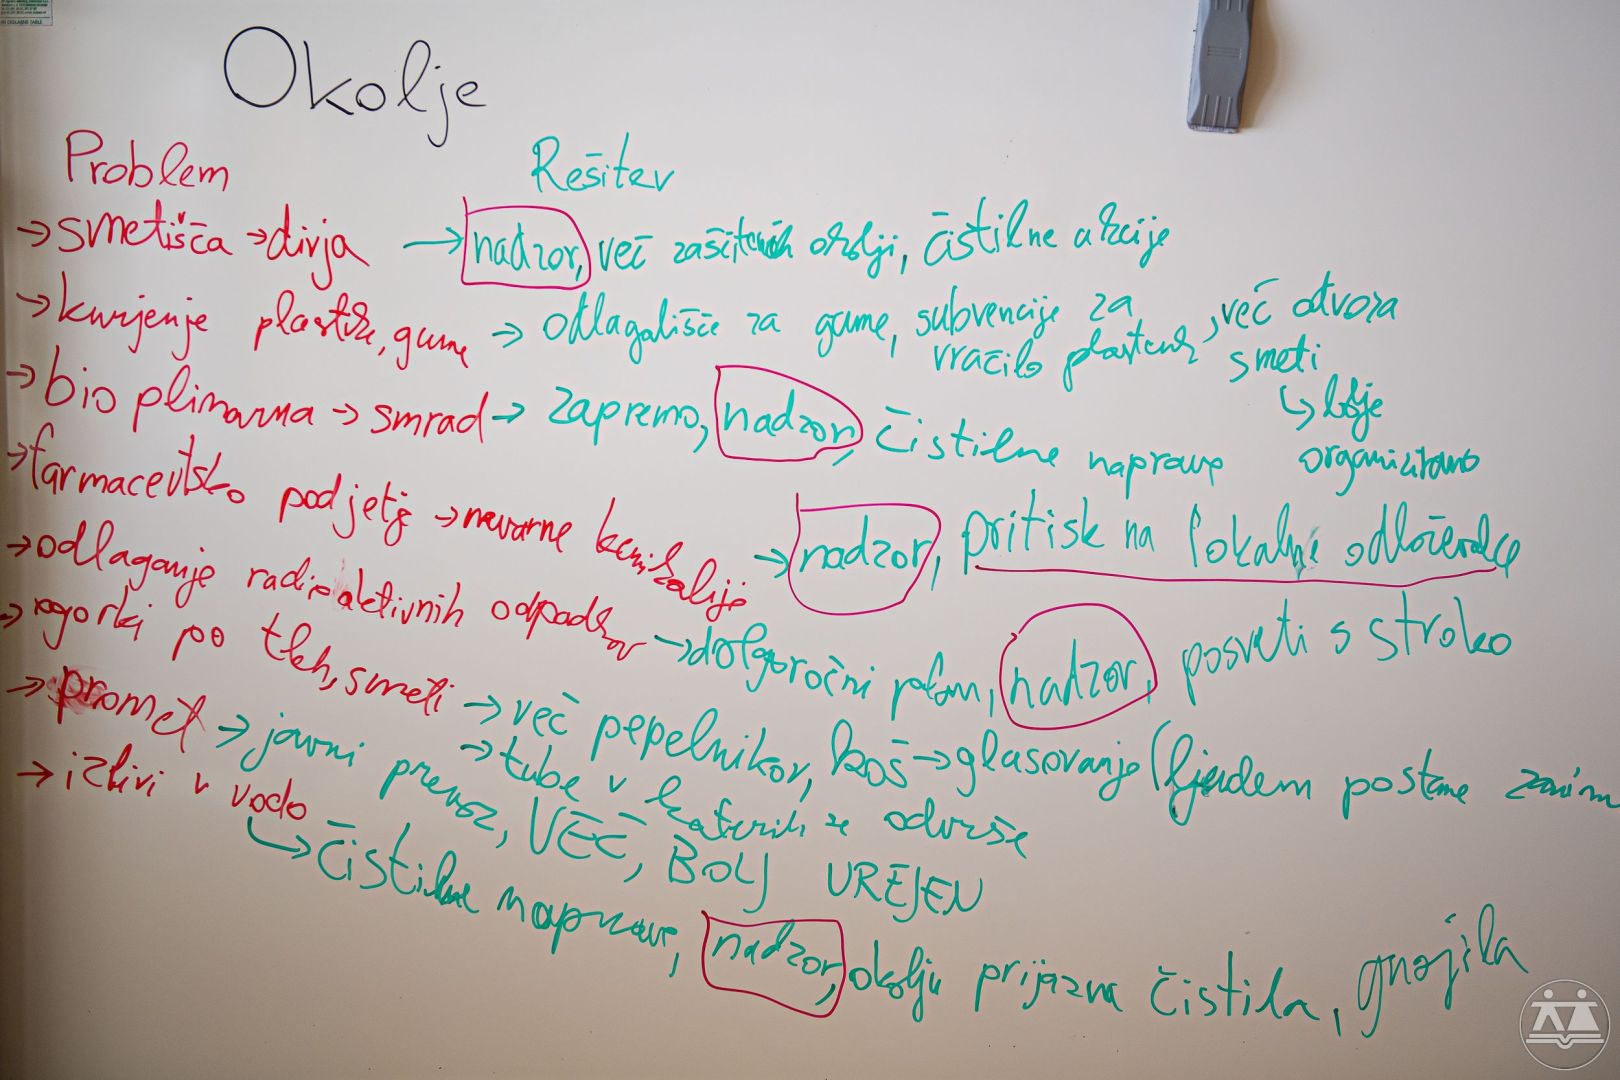 Okolje
Problem Rešitev
→ smetišča → divja → nadzor, več zaščitenih okolij, čistilne akcije
→ kurjenje plastike, gume → odlagališče za gume, subvencije za vračilo plastenk, več odvoza smeti
↳ bolje organizirano
→ bio plinarna → smrad → zapremo, nadzor, čistilne naprave
→ farmacevtsko podjetje → nevarne kemikalije → nadzor, pritisk na lokalne odločevalce
→ odlaganje radioaktivnih odpadkov → dolgoročni plan, nadzor, posveti s stroko
→ ogorki po tleh, smeti → več pepelnikov, koš → glasovanje (ljudem postane
→ tube v katerih se odvrže
→ promet → javni prevoz, VEČ, BOLJ UREJEN
→ izlivi v vodo
↳ čistilne naprave, nadzor, okolju prijazna čistila, gnojila